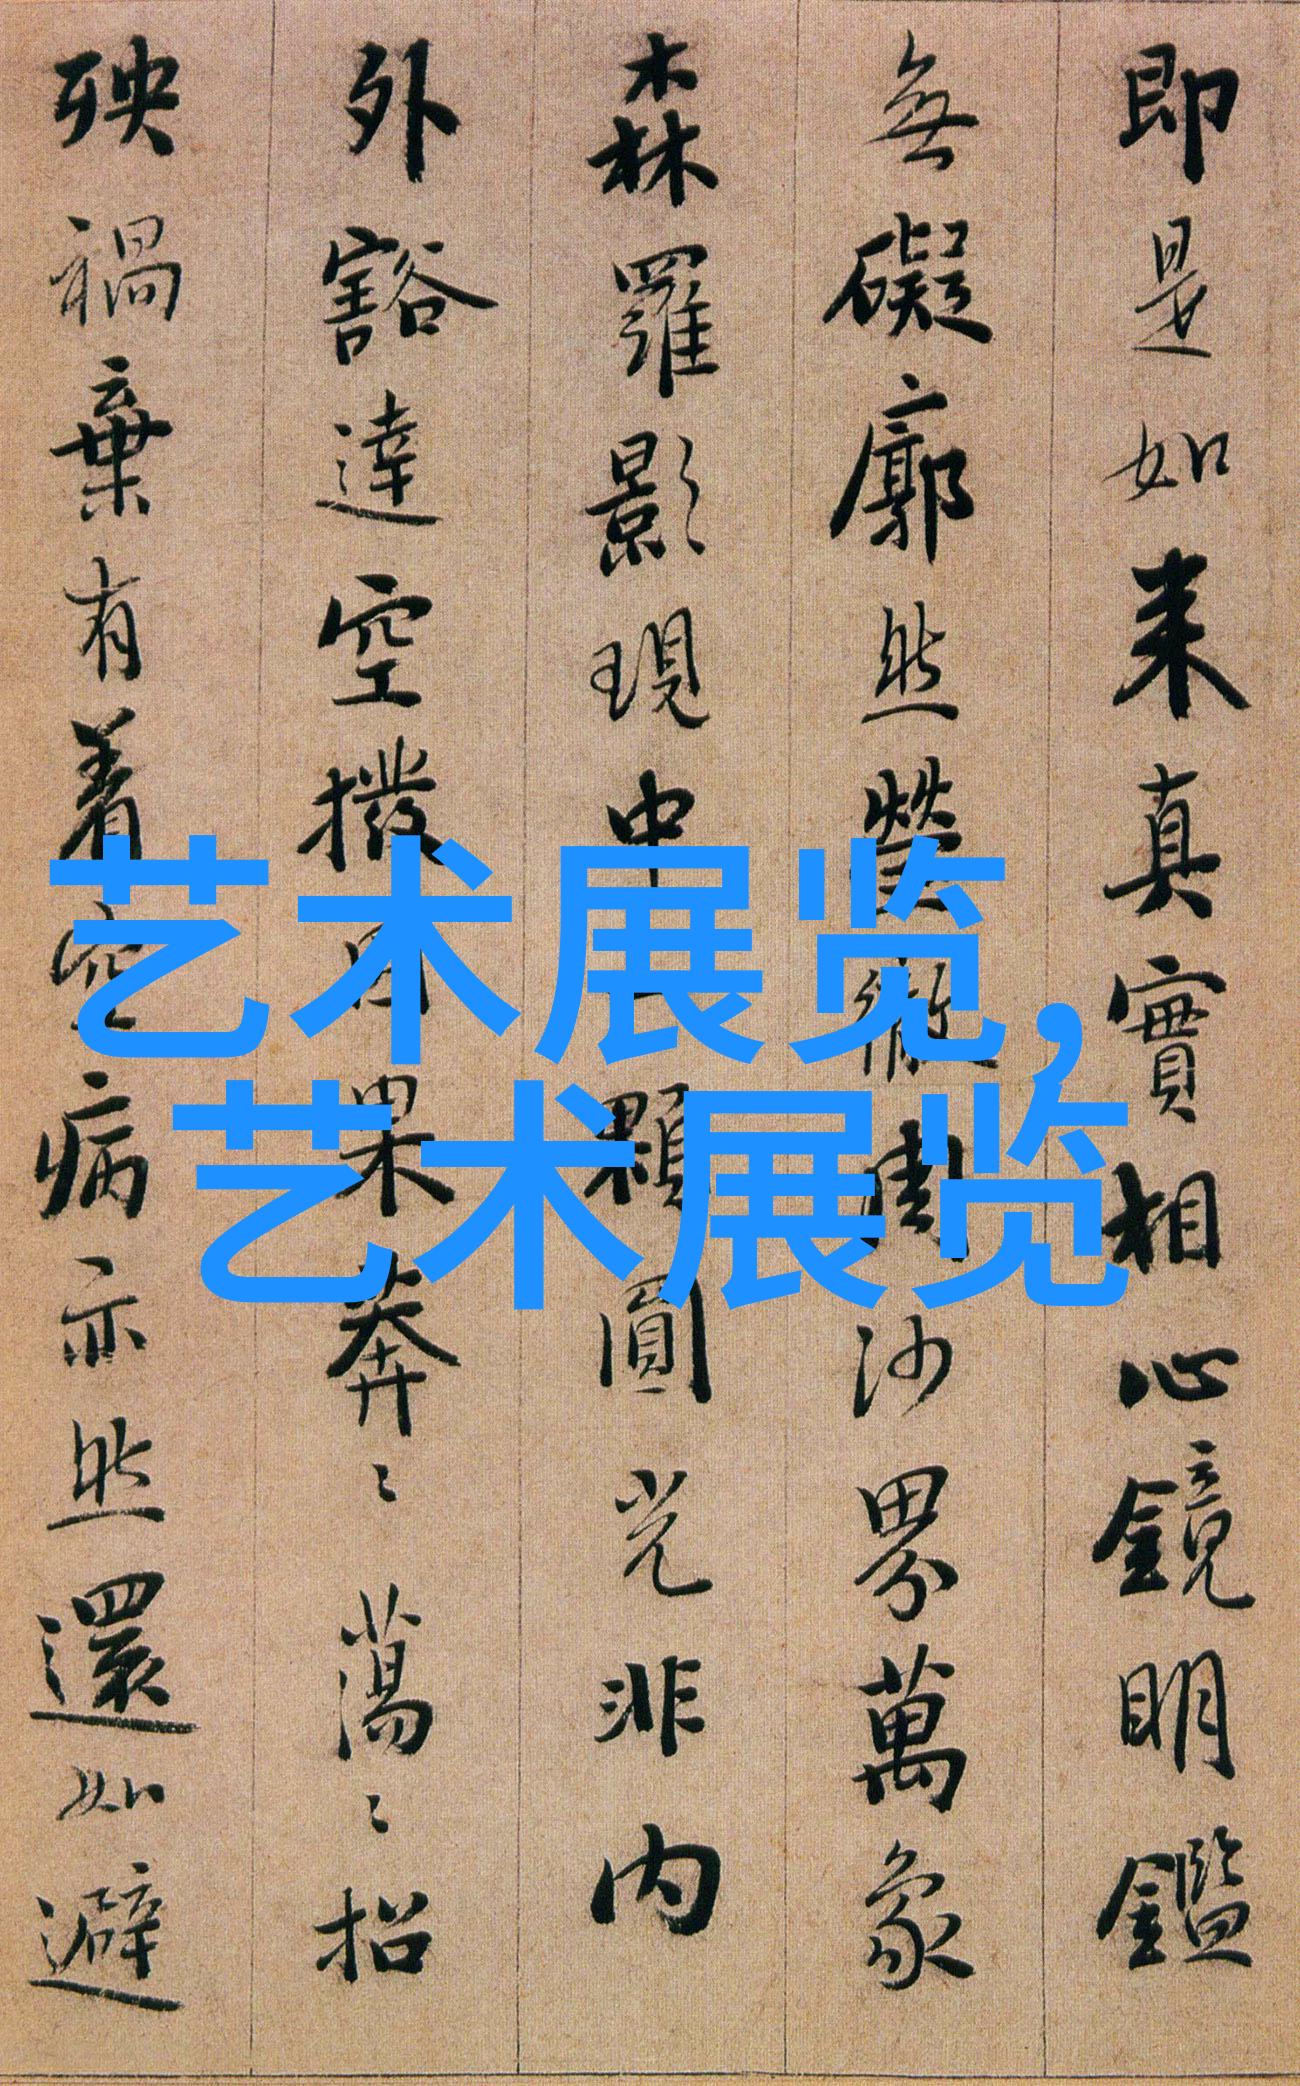 即是如来真實相心鏡明鑑
無礙廓然瑩徹周沙界萬象
森羅影現中一顆圓光非内
外豁達空撥因果莽〻蕩〻招
殃禍棄有着空病亦然還如避
艺术展览,
艺术展览